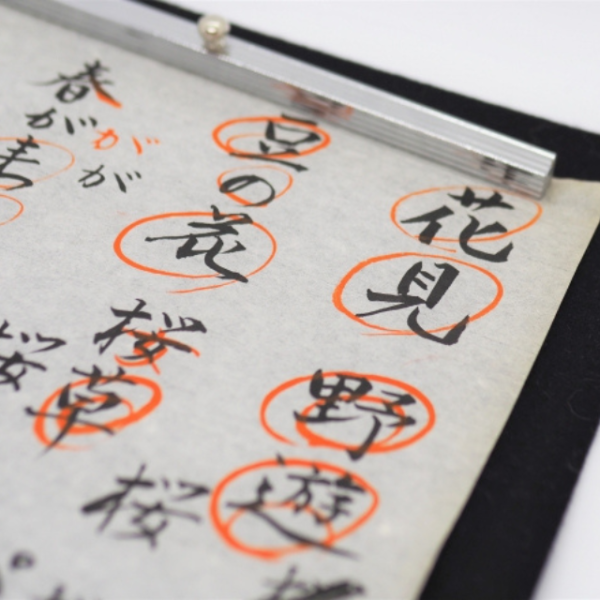 花見
野遊
豆の花
桜草
桜
春が
がが
桜